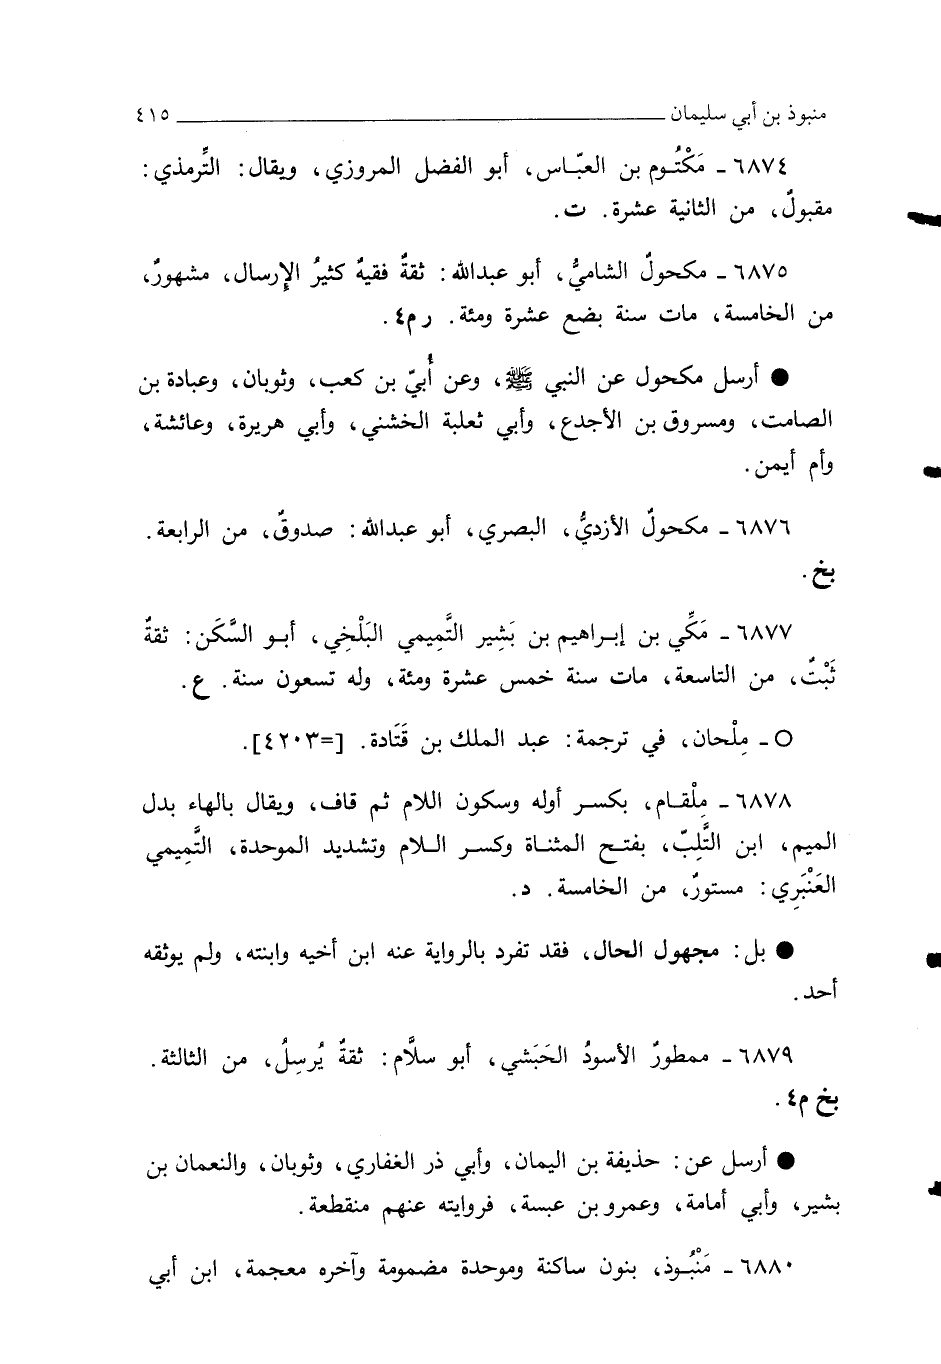 منبوذ بن أبي سليمان ٤١٥
٦٨٧٤ ـ مَكْتُـوم بن العبّـاس، أبو الفضل المروزي، ويقال: التِّرمذي:
مقبولٌ، من الثانية عشرة. ت.
٦٨٧٥ ـ مكحولٌ الشاميُّ، أبو عبدالله: ثقةٌ فقيهٌ كثيرُ الإرسال، مشهورٌ،
من الخامسة، مات سنة بضع عشرة ومئة. ر م٤.
● أرسل مكحول عن النبي ﷺ، وعن أُبيّ بن كعب، وثوبان، وعبادة بن
الصامت، ومسروق بن الأجدع، وأبي ثعلبة الخشني، وأبي هريرة، وعائشة،
وأم أيمن.
٦٨٧٦ ـ مكحولٌ الأزديُّ، البصري، أبو عبدالله: صدوقٌ، من الرابعة.
بخ.
٦٨٧٧ ـ مَكِّي بن إبـراهيم بن بَشِير التَّمِيمي البَلْخِي، أبـو السَّكَن: ثقةٌ
ثَبْتٌ، من التاسعة، مات سنة خمس عشرة ومئة، وله تسعون سنة. ع.
○ ـ مِلْحان، في ترجمة: عبد الملك بن قَتَادة. [=٤٢٠٣].
٦٨٧٨ ـ مِلْقـام، بكسـر أوله وسكون اللام ثم قاف، ويقال بالهاء بدل
الميم، ابن التَّلِبّ، بفتـح المثنـاة وكسـر الـلام وتشديد الموحدة، التَّمِيمي
العَنْبَرِي: مستورٌ، من الخامسة. د.
● بل: مجهول الحال، فقد تفرد بالرواية عنه ابن أخيه وابنته، ولم يوثقه
أحد.
٦٨٧٩ ـ ممطورٌ الأسودُ الحَبَشي، أبو سلَّام: ثقةٌ يُرسِلُ، من الثالثة.
بخ م٤.
● أرسل عن: حذيفة بن اليمان، وأبي ذر الغفاري، وثوبان، والنعمان بن
بشير، وأبي أمامة، وعمرو بن عبسة، فروايته عنهم منقطعة.
٦٨٨٠ ـ مَنْبُـوذ، بنون ساكنة وموحدة مضمومة وآخره معجمة، ابن أبي